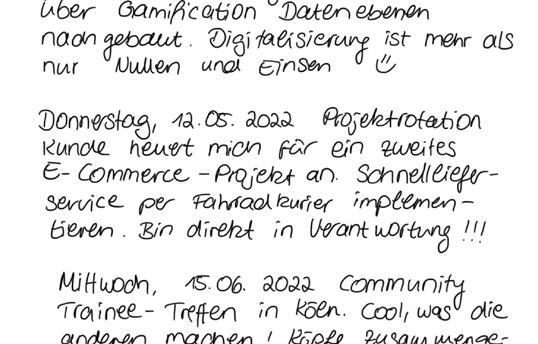 über Gamification Datenebenen
nachgebaut. Digitalisierung ist mehr als
nur Nullen und Einsen
Donnerstag, 12.05.2022 Projektrotation
Kunde heuert mich für ein zweites
E-Commerce-Projekt an. Schnellliefer-
service per Fahrradkurier implemen-
tieren. Bin direkt in Verantwortung !!!
Mittwoch, 15.06.2022 Community
Trainee-Treffen in Köln. Cool, was die
anderen machen! Köpfe zusammenge-